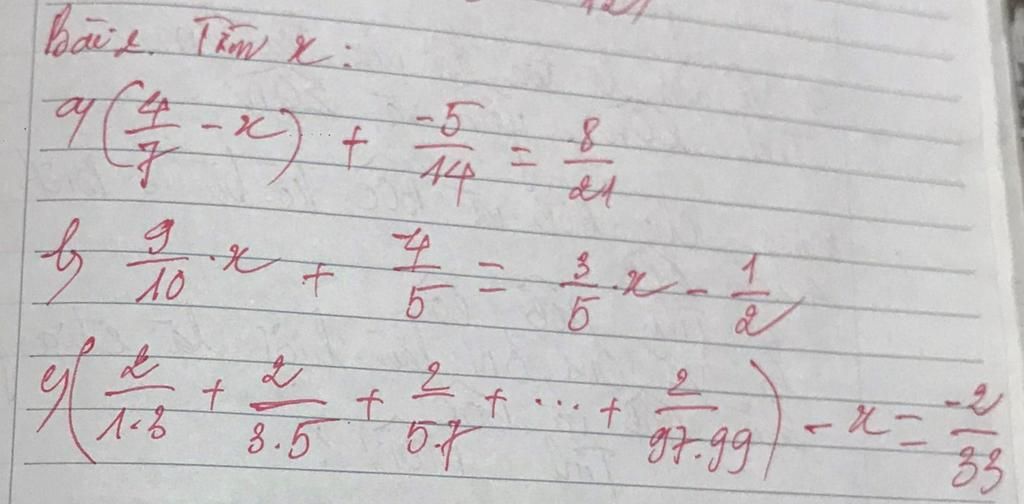 Bài 2. Tìm x:
a) (4/7 - x) + -5/14 = 8/21
b) 9/10 . x + -4/5 = 3/5 . x - 1/2
c) (2/1.3 + 2/3.5 + 2/5.7 + ... + 2/97.99) - x = -2/33